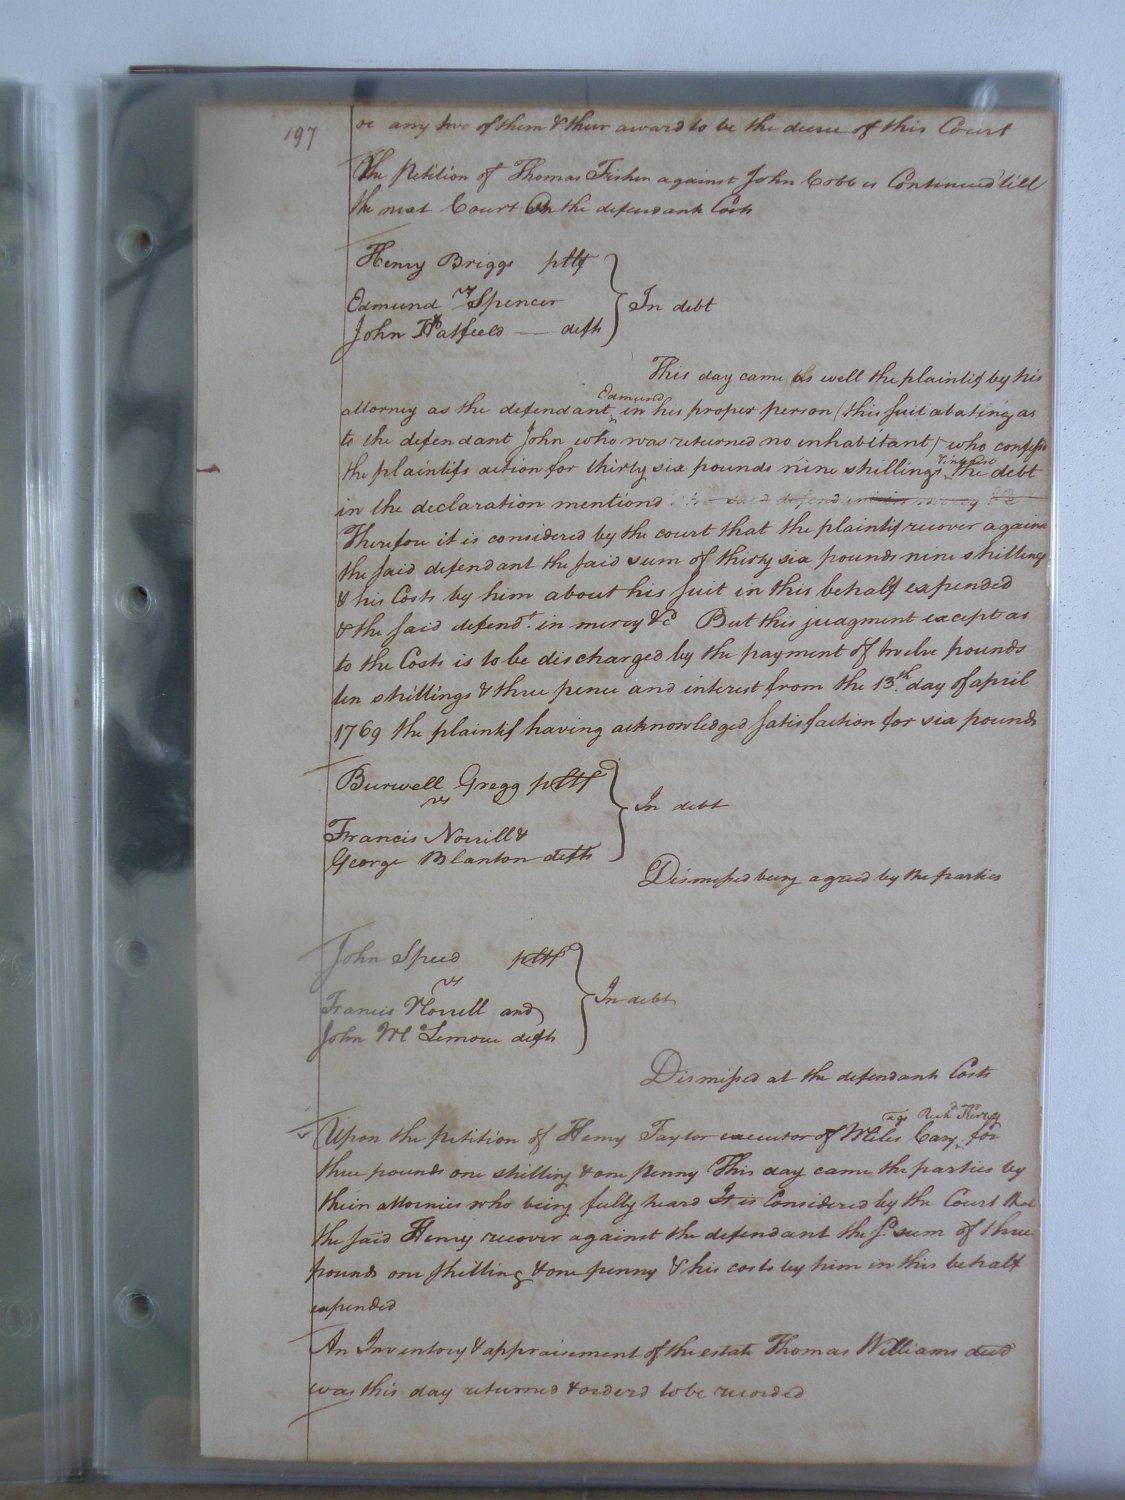 197
or any two of them & their award to be the decree of this Court
The Petition of Thomas Fisher against John Cobb is Continued till
the next Court On the defendants Costs
Henry Briggs pltf
vs
Edmund Spencer
John Hatfield — defts
In debt
This day came as well the plaintif by his
attorney as the defendant Edmund in his proper person (this suit abating as
to the defendant John who was returned no inhabitant) who confess'd
the plaintifs action for thirty six pounds nine shillings the debt
in the declaration mentiond the said defendant in mercy &c
Therefore it is considered by the court that the plaintif recover against
the said defendant the said sum of thirty six pounds nine shillings
& his Costs by him about his suit in this behalf expended
& the said defendt. in mercy &c But this judgment except as
to the Costs is to be discharged by the payment of twelve pounds
ten shillings & three pence and interest from the 13th. day of april
1769 the plaintif having acknowledged satisfaction for six pounds
Burwell Gregg pltf
vs
Francis Norrill &
George Blanton defts
In debt
Dismissed being agreed by the parties
John Speed pltf
vs
Francis Norrell and
John McLemore defts
In debt
Dismissed at the defendants Costs
Upon the petition of Henry Taylor executor of Miles Cary, ags Richd for
three pounds one shilling & one penny This day came the parties by
their attornies who being fully heard It is Considered by the Court that
the said Henry recover against the defendant the sd. sum of three
pounds one shilling & one penny & his costs by him in this behalf
expended
An Inventory & appraisement of the estate Thomas Williams decd
was this day returned & orderd to be recorded